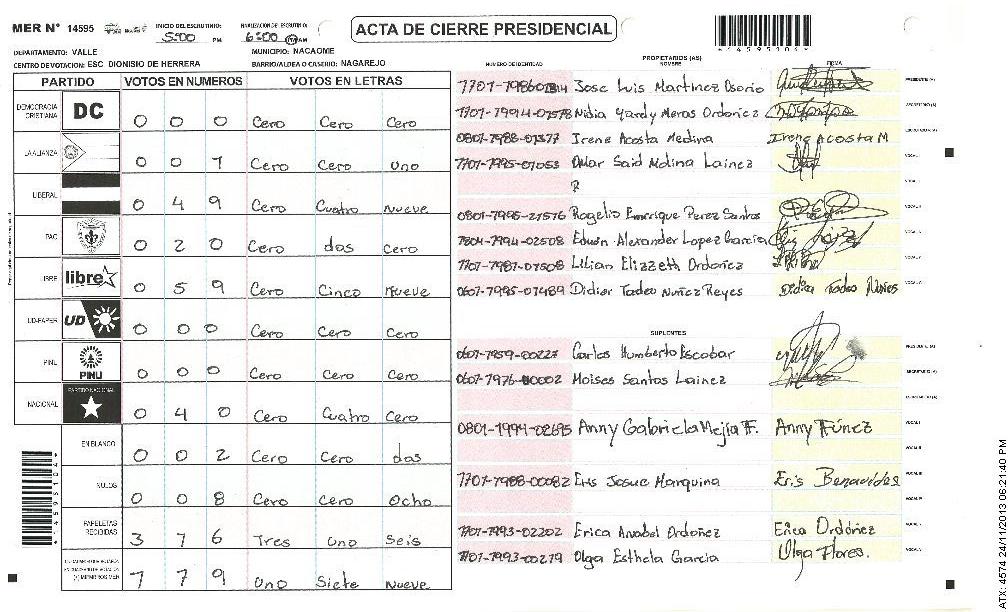 MER N° 14595 INICIO DEL ESCRUTINIO: 5:00 PM FINALIZACION DE ESCRUTINIO: 6:00 AM
ACTA DE CIERRE PRESIDENCIAL
DEPARTAMENTO: VALLE MUNICIPIO: NACAOME
CENTRO DE VOTACION: ESC DIONISIO DE HERRERA BARRIO/ALDEA O CASERIO: NAGAREJO
PARTIDO VOTOS EN NUMEROS VOTOS EN LETRAS
DEMOCRACIA CRISTIANA DC 0 0 0 Cero Cero Cero
LA ALIANZA 0 0 1 Cero Cero Uno
LIBERAL 0 4 9 Cero Cuatro Nueve
PAC 0 2 0 Cero dos Cero
LIBRE libre 0 5 9 Cero Cinco Nueve
UD-FAPER UD 0 0 0 Cero Cero Cero
PINU PINU 0 0 0 Cero Cero Cero
NACIONAL PARTIDO NACIONAL 0 4 0 Cero Cuatro Cero
EN BLANCO 0 0 2 Cero Cero dos
NULOS 0 0 8 Cero Cero Ocho
PAPELETAS RECIBIDAS 3 1 6 Tres Uno Seis
1 7 9 Uno Siete Nueve
PROPIETARIOS (AS)
NUMERO DE IDENTIDAD NOMBRE FIRMA
Jose Luis Martinez Osorio PRESIDENTE (A)
1701-1994-01578 Nidia Yardy Meras Ordoñez SECRETARIO (A)
0801-1988-01377 Irene Acosta Medina Irene Acosta M ESCRUTADOR (A)
1701-1995-01053 Omar Said Molina Lainez VOCAL I
VOCAL II
0801-1995-21576 Rogelio Enmrique Perez Santos VOCAL III
1804-1994-02508 Edwin Alexander Lopez Garcia VOCAL IV
1707-1987-01508 Lilian Elizzeth Ordoñez VOCAL V
0607-1995-01489 Didier Tadeo Nuñez Reyes Didier Tadeo Nuñes
SUPLENTES
0607-1959-00227 Carlos Humberto Escobar PRESIDENTE (A)
0607-1976-00002 Moises Santos Lainez SECRETARIO (A)
ESCRUTADOR (A)
0801-1994-02695 Anny Gabriela Mejía F. Anny Fúnez VOCAL I
VOCAL II
1707-1988-00082 Eris Josue Marquina Eris Benavides VOCAL III
VOCAL IV
1707-1993-02202 Erica Anabel Ordoñez Erica Ordóñez
1707-1993-00279 Olga Esthela Garcia Olga Flores.
ATX: 4574 24/11/2013 06:21:40 PM